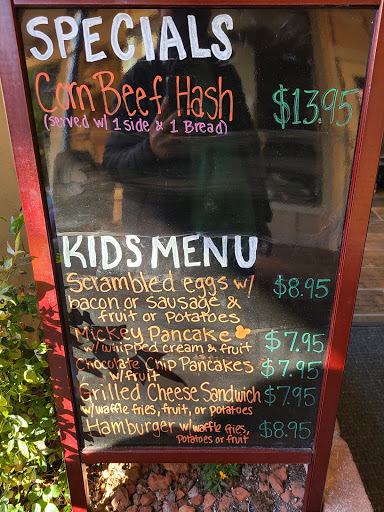 SPECIALS
Corn Beef Hash $13.95
(served w/ 1 side & 1 Bread)
KIDS MENU
Scrambled eggs w/ $8.95
bacon or sausage &
fruit or potatoes
Mickey Pancake $7.95
w/ whipped cream & fruit
Chocolate Chip Pancakes $7.95
w/ fruit
Grilled Cheese Sandwich $7.95
w/ waffle fries, fruit, or potatoes
Hamburger w/ waffle fries, $8.95
potatoes or fruit